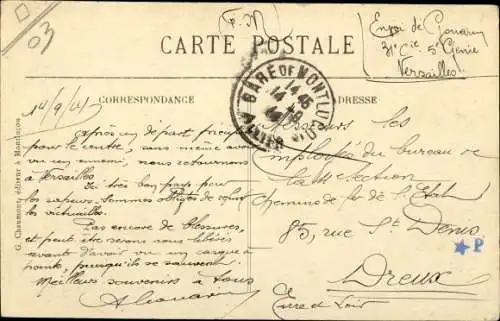 03
(F.M)
CARTE POSTALE
Envoi de Gouarin
31e Cie 5e Génie
Versailles
14/9/14
CORRESPONDANCE
ADRESSE
GARE DE MONTLUÇON
14 45
14 -9
14
ALLIER
Après un départ
pour le centre, sans même avoir
vu un ennemi, nous retournons
à Versailles
Ici très bon pays pour
les sapeurs. Sommes obligés de
les victuailles.
Pas encore de blessures,
et peut être serons nous libérés
avant d'avoir vu un casque à
pointe, puisqu'ils se sauvent.
Meilleurs souvenirs à tous
Messieurs les
Employés du bureau de
la
Chemins de fer de l'Etat
85, rue St Denis
Dreux
Eure et Loir
P
G. Chaumont, éditeur à Montluçon